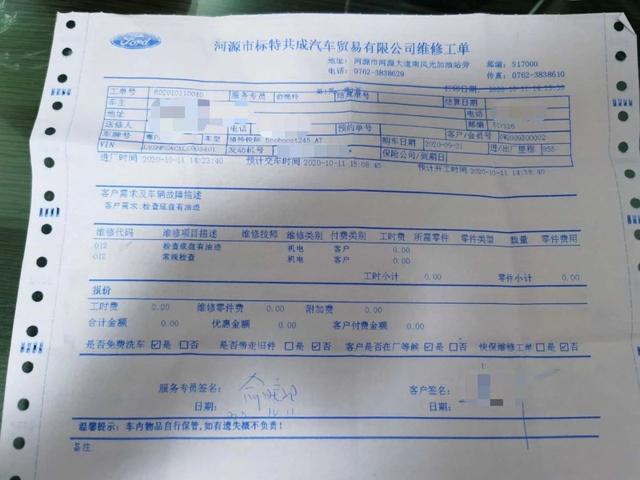 Ford
河源市标特共成汽车贸易有限公司维修工单
地址: 河源市河源大道南风光加油站旁 邮编: 517000
电话: 0762-3838629 传真: 0762-3838610
工单号 RO20101100 服务专员 结算单号 结算日期
车主 电话
送修人 电话 预约单号 邮编
车牌号 车型 Ecoboost245 AT 购车日期 2020-09-21 客户/会员号
VIN 发动机号 保险公司/到期日 进/出厂里程 855
进厂时间 2020-10-11 14:23:40 预计交车时间 2020-10-11 15:08:40 预计开工时间 2020-10-11 14:38:40
客户需求及车辆故障描述
客户需求:检查底盘有油迹
维修代码 维修项目描述 维修技师 维修类别 付费类别 工时费 所需零件 零件类型 数量 零件费用
012 检查底盘有油迹 机电 客户 0.00
012 常规检查 机电 客户 0.00
工时小计 0.00 零件小计 0.00
报价
工时费 0.00 维修零件费 0.00 附加费 0.00
合计金额 0.00 优惠金额 0.00 客户付费金额 0.00
是否免费洗车 ☑是 □否 是否带走旧件 □是 ☑否 客户是否在厂等候 ☑是 □否 快保维修工单 □是 ☑否
服务专员签名: 客户签名:
日期: 日期:
温馨提示: 车内物品自行保管,如有遗失概不负责!
备注: